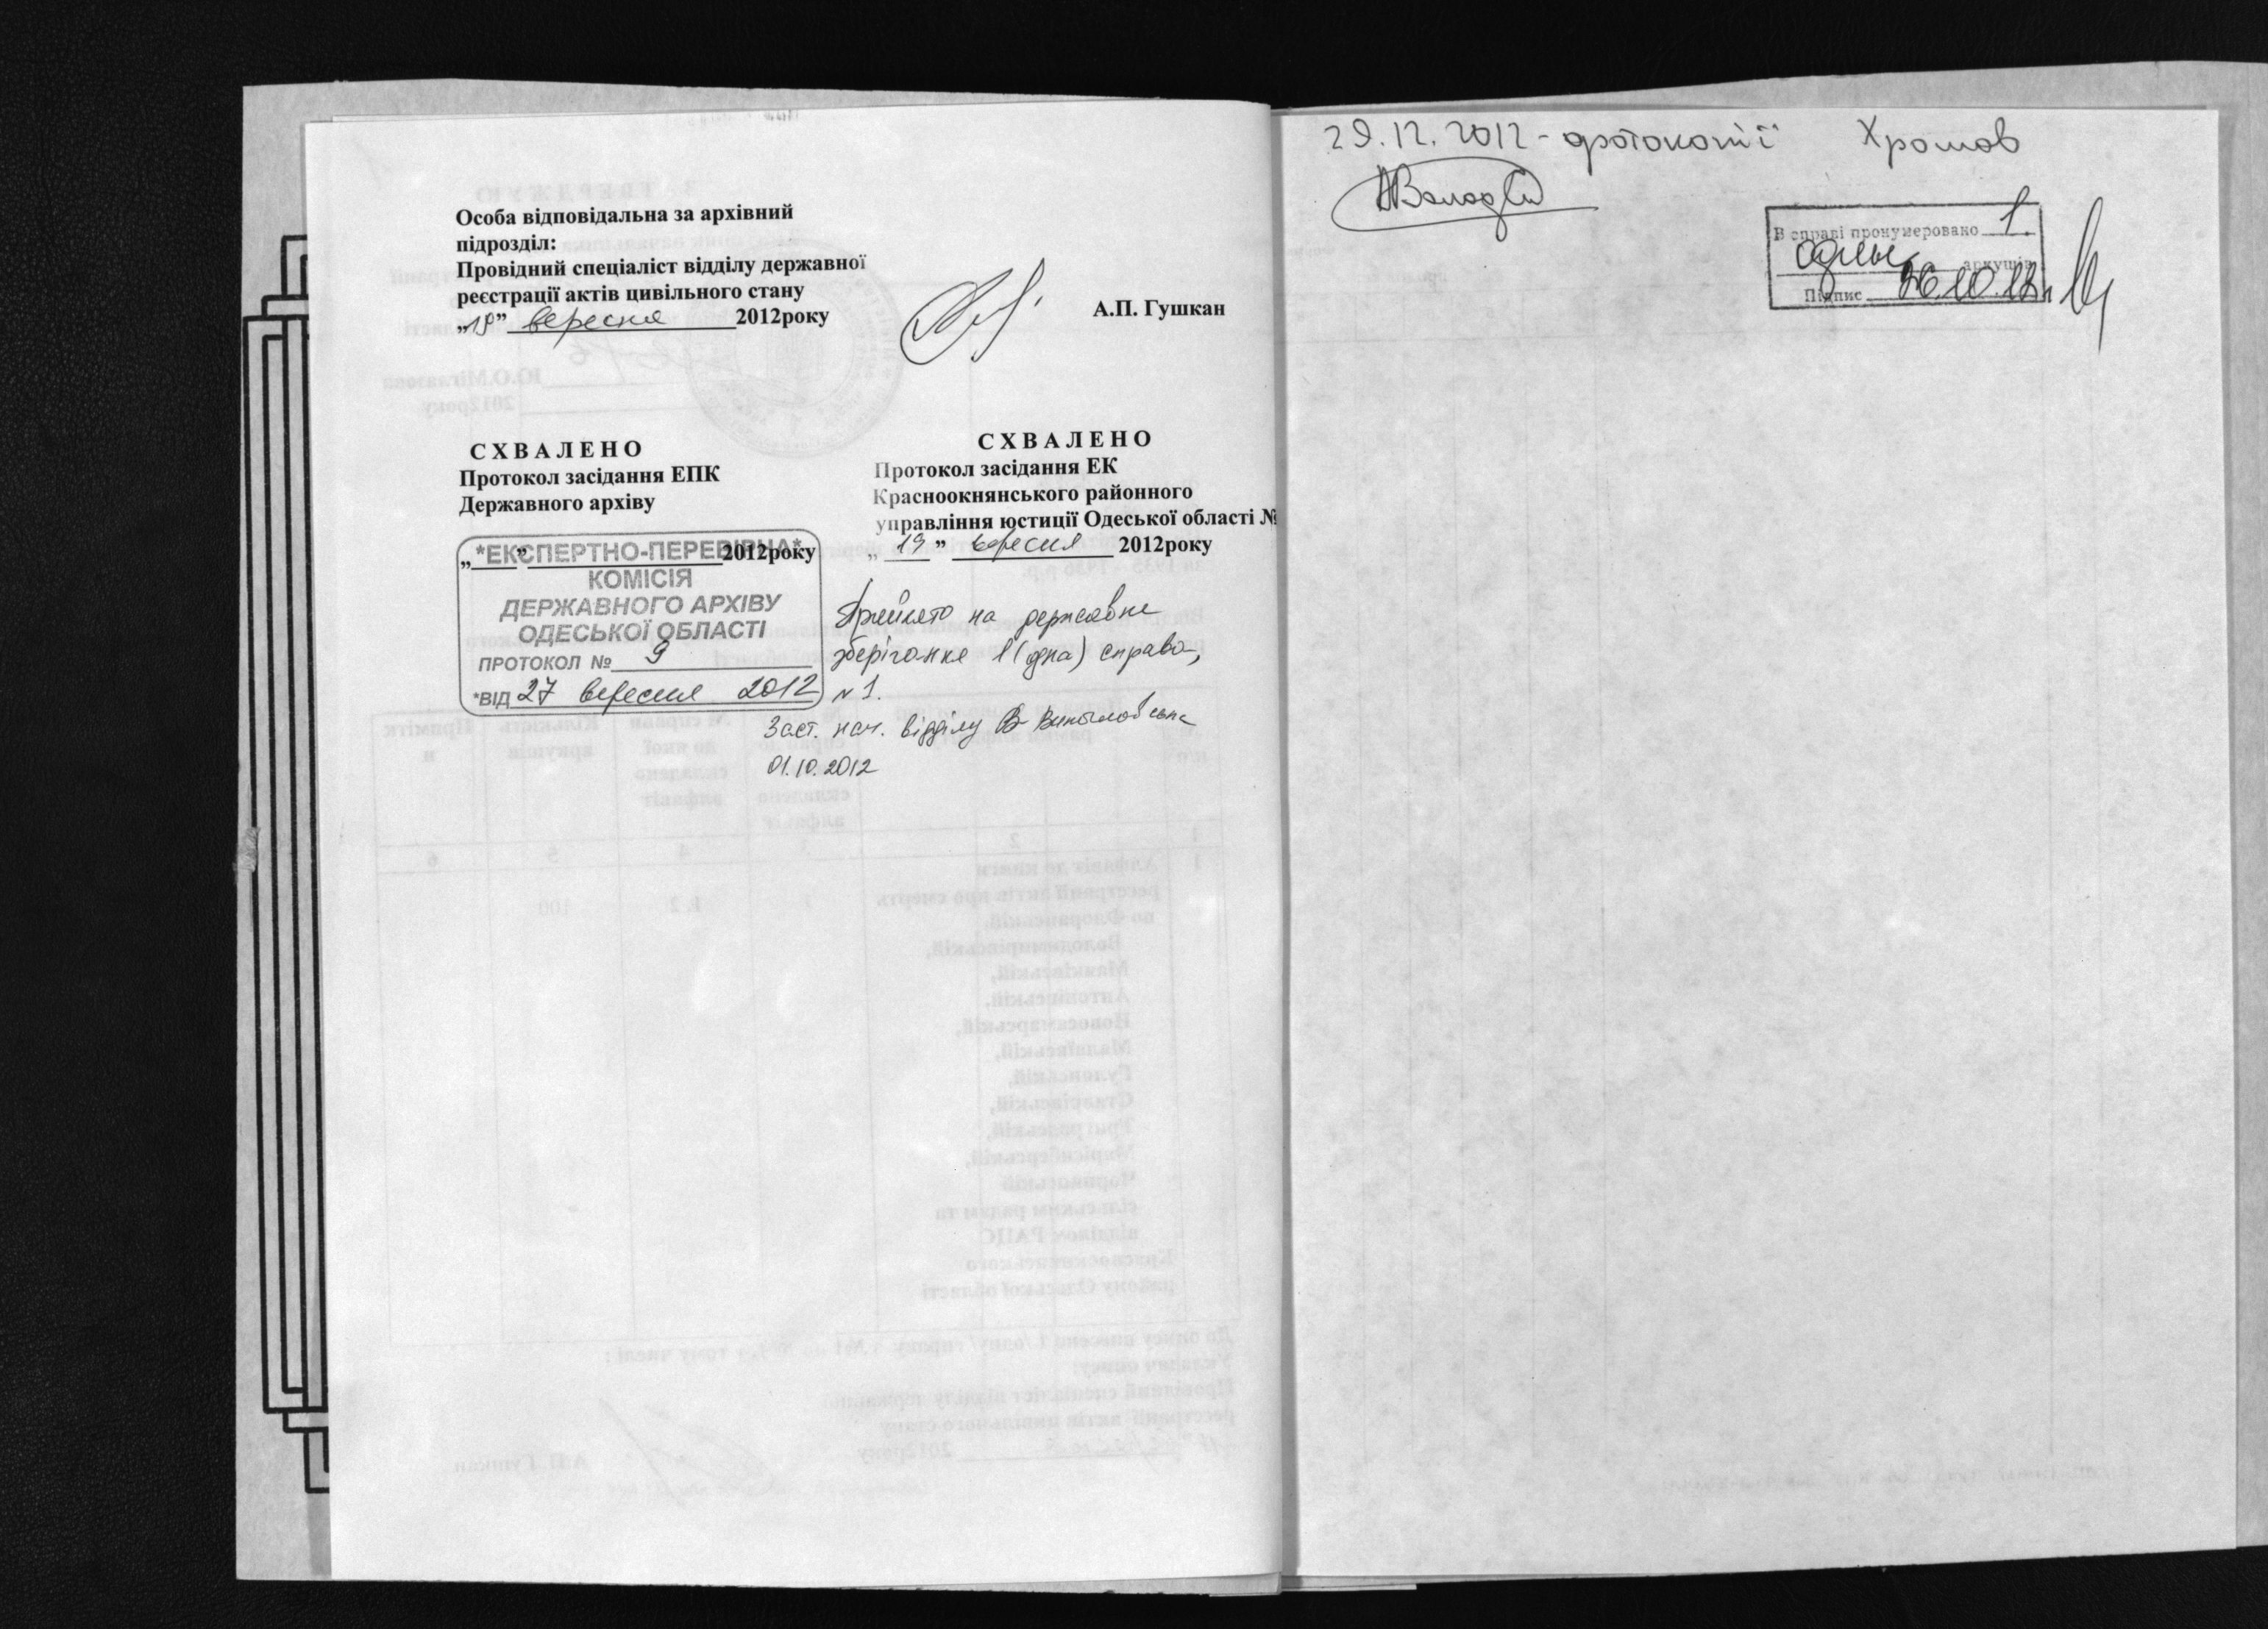 Особа відповідальна за архівний
підрозділ:
Провідний спеціаліст відділу державної
реєстрації актів цивільного стану
„19” вересня 2012року
А.П. Гушкан
С Х В А Л Е Н О
Протокол засідання ЕПК
Державного архіву
„ ” 2012року
*ЕКСПЕРТНО-ПЕРЕВІРНА*
КОМІСІЯ
ДЕРЖАВНОГО АРХІВУ
ОДЕСЬКОЇ ОБЛАСТІ
ПРОТОКОЛ № 9
*ВІД 27 вересня 2012
С Х В А Л Е Н О
Протокол засідання ЕК
Красноокнянського районного
управління юстиції Одеської області №
„ 19 ” вересня 2012року
Прийнято на державне
зберігання 1 (одна) справа,
№ 1.
Заст. нач. відділу
01.10.2012
29.12.2012 - фотокопії Хромов
В справі пронумеровано 1.
один аркушів
Підпис 26.10.12